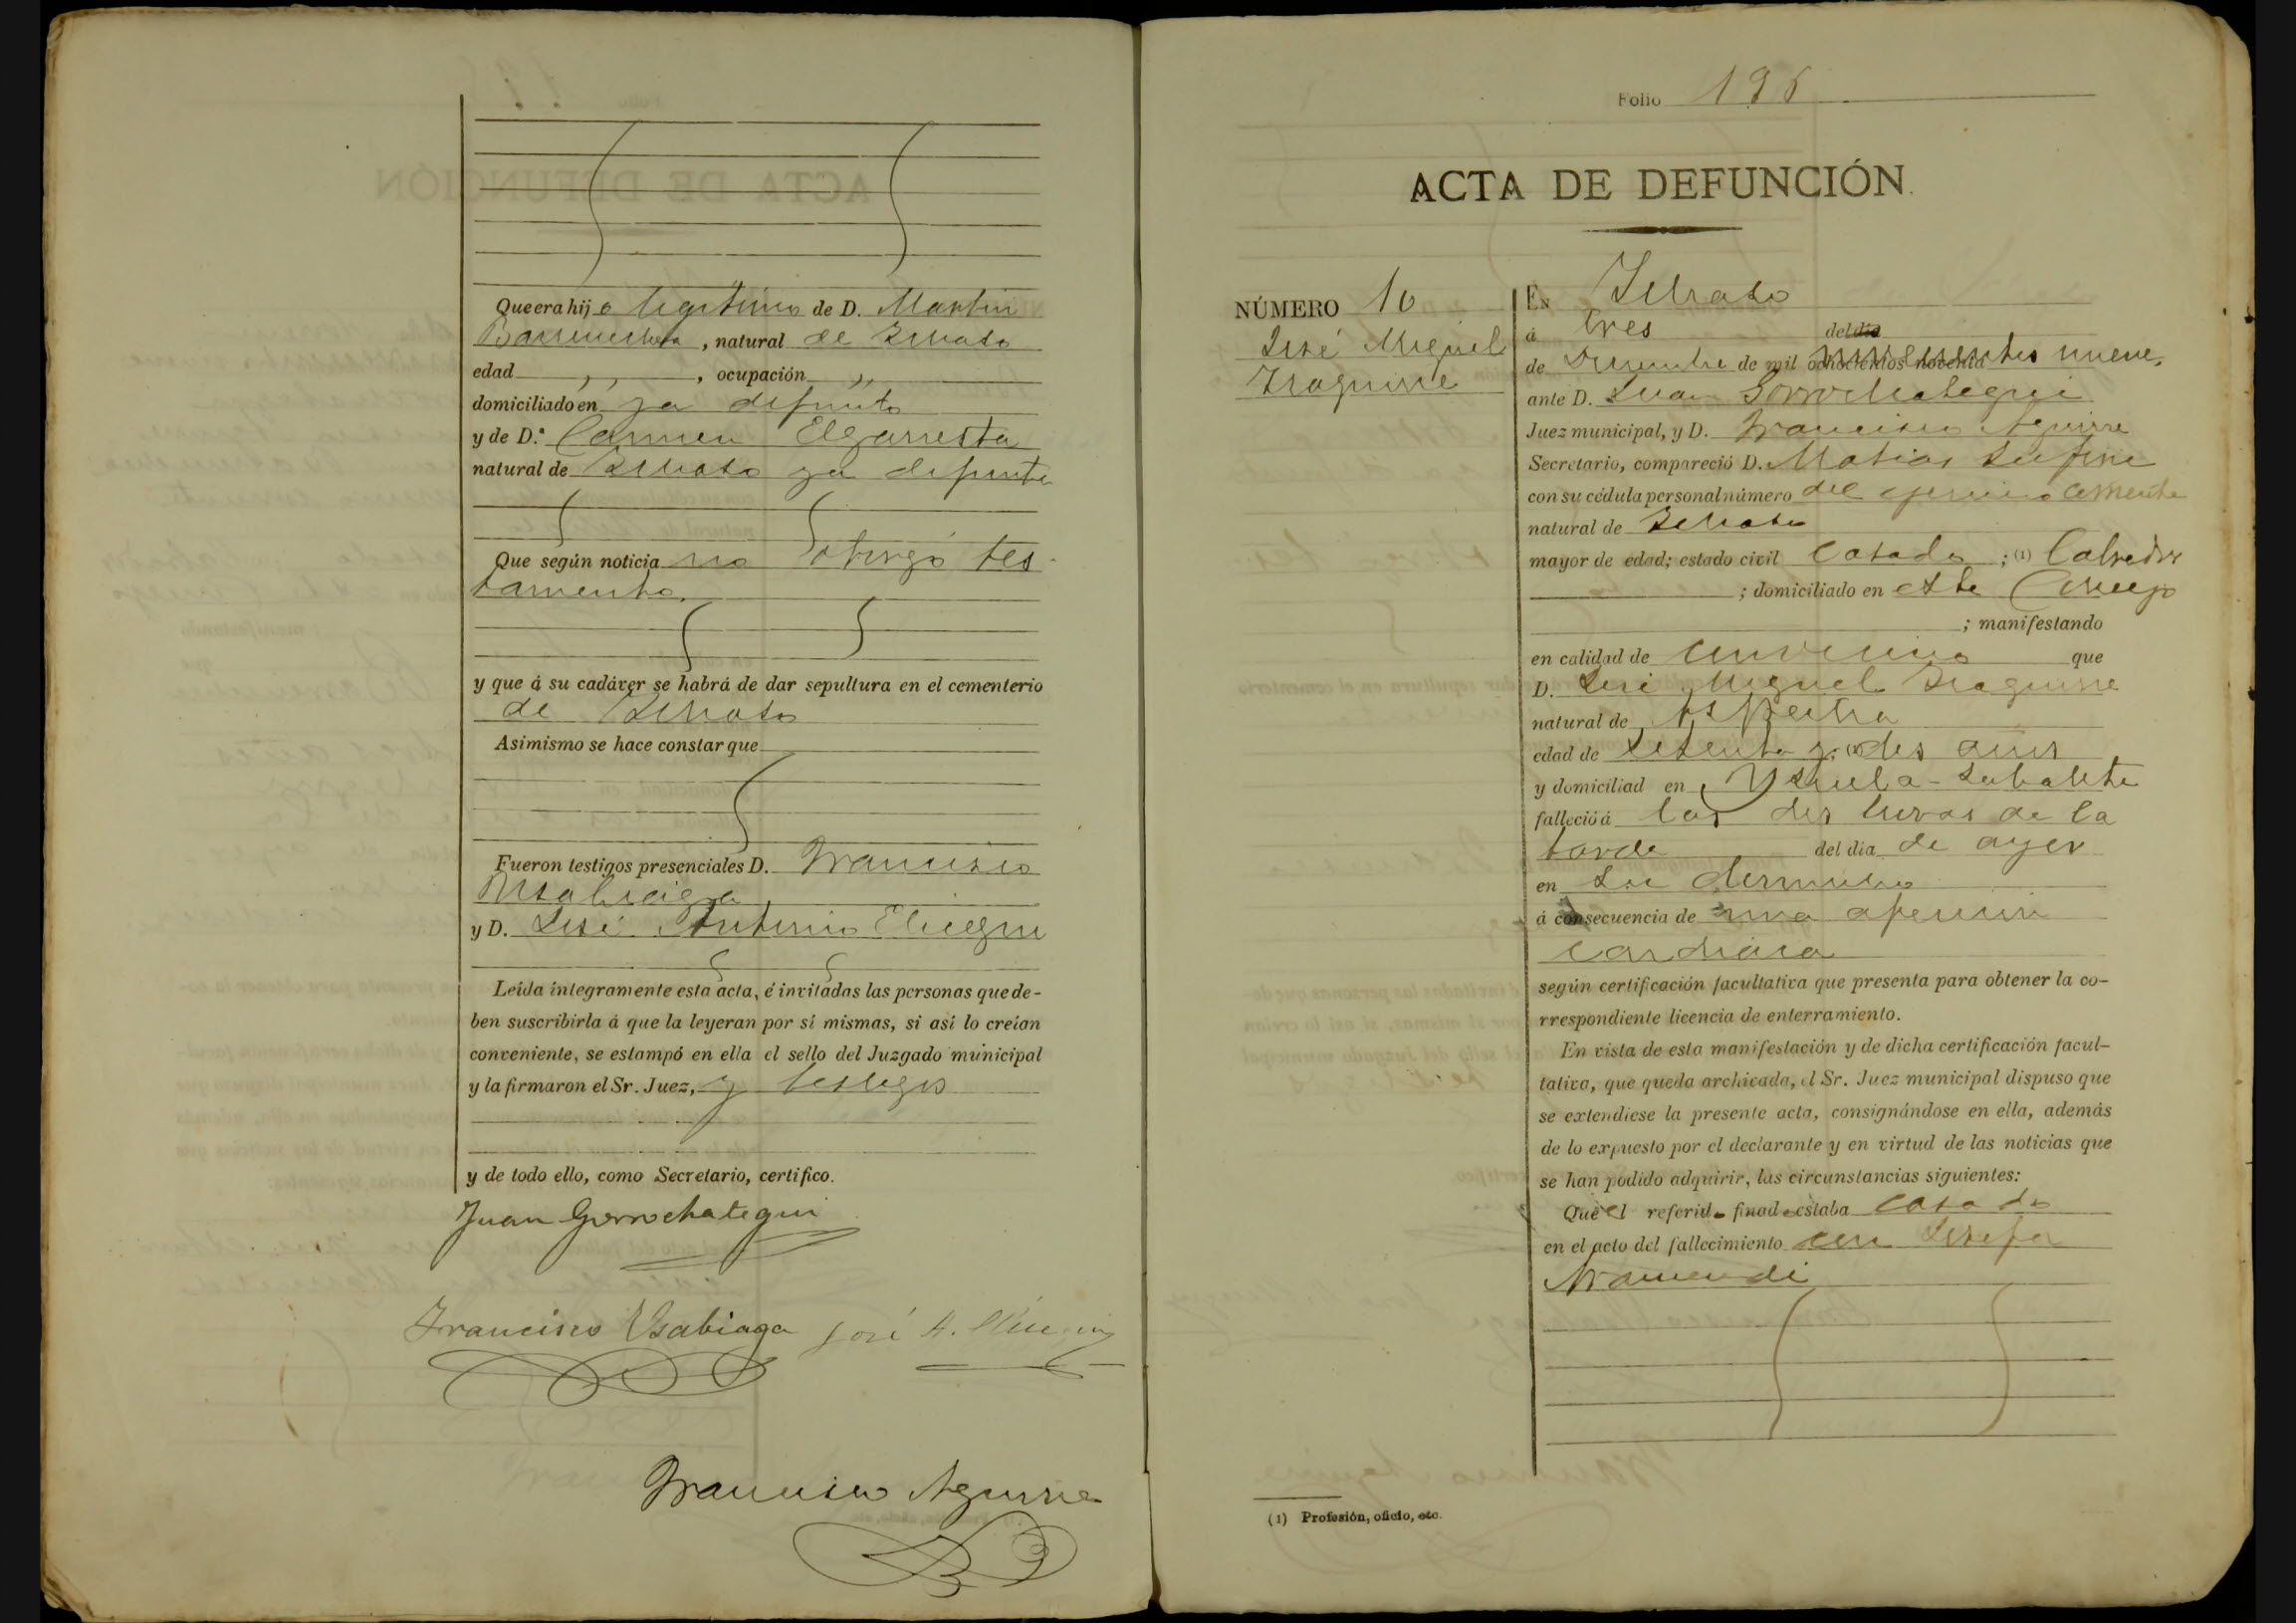 Que era hijo legitimo de D. Martin
Barrenechea, natural de Ichaso
edad ,, , ocupación ,,
domiciliado en ya difunto
y de D.ª Carmen Elgarresta
natural de Ichaso ya difunta
Que según noticia no otorgó tes-
tamento.
y que á su cadáver se habrá de dar sepultura en el cementerio
de Ichaso
Asimismo se hace constar que
Fueron testigos presenciales D. Francisco
Usabiaga
y D. José Antonio Elicegui
Leída íntegramente esta acta, é invitadas las personas que de-
ben suscribirla á que la leyeran por sí mismas, si así lo creían
conveniente, se estampó en ella el sello del Juzgado municipal
y la firmaron el Sr. Juez, y testigos
y de todo ello, como Secretario, certifico.
Juan Gorrochategui
Francisco Usabiaga José A. Elicegui
Francisco Aguirre
Folio 196
ACTA DE DEFUNCIÓN.
NÚMERO 10
José Miguel
Iraguirre
En Ichaso
á tres del día
de Diciembre de mil ochocientos noventa novecientos nueve,
ante D. Juan Gorrochategui
Juez municipal, y D. Francisco Aguirre
Secretario, compareció D. Matias
con su cédula personal número del ejercicio corriente
natural de Ichaso
mayor de edad; estado civil casado ; (1) Labrador
; domiciliado en este Concejo
; manifestando
en calidad de convecino que
D. José Miguel Iraguirre
natural de Azpeitia
edad de sesenta y dos años
y domiciliad en
falleció á las dos horas de la
tarde del día de ayer
en su domicilio
á consecuencia de una afeccion
cardiaca
según certificación facultativa que presenta para obtener la co-
rrespondiente licencia de enterramiento.
En vista de esta manifestación y de dicha certificación facul-
tativa, que queda archivada, el Sr. Juez municipal dispuso que
se extendiese la presente acta, consignándose en ella, además
de lo expuesto por el declarante y en virtud de las noticias que
se han podido adquirir, las circunstancias siguientes:
Que el referido finado estaba casado
en el acto del fallecimiento con Josefa
Aramendi
(1) Profesión, oficio, etc.